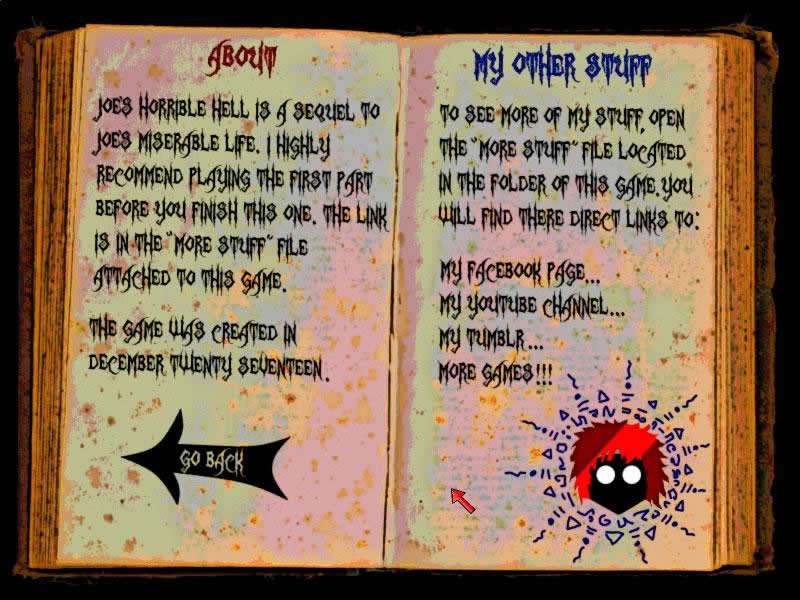 ABOUT
JOE'S HORRIBLE HELL IS A SEQUEL TO
JOE'S MISERABLE LIFE. I HIGHLY
RECOMMEND PLAYING THE FIRST PART
BEFORE YOU FINISH THIS ONE. THE LINK
IS IN THE "MORE STUFF" FILE
ATTACHED TO THIS GAME.
THE GAME WAS CREATED IN
DECEMBER TWENTY SEVENTEEN.
GO BACK
MY OTHER STUFF
TO SEE MORE OF MY STUFF, OPEN
THE "MORE STUFF" FILE LOCATED
IN THE FOLDER OF THIS GAME. YOU
WILL FIND THERE DIRECT LINKS TO:
MY FACEBOOK PAGE...
MY YOUTUBE CHANNEL...
MY TUMBLR...
MORE GAMES!!!